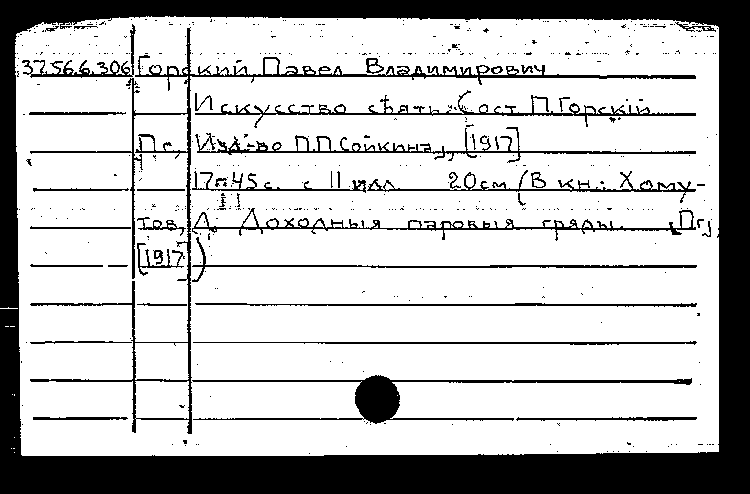 37.56.6.306 Горский, Павел Владимирович
Искусство сѣять. Сост П.Горскій
Пг, Изд-во П.П.Сойкина, [1917]
17-45 с. с 11 илл. 20см (В кн.: Хому-
тов, Д. Доходныя паровыя гряды. Пг,
[1917])